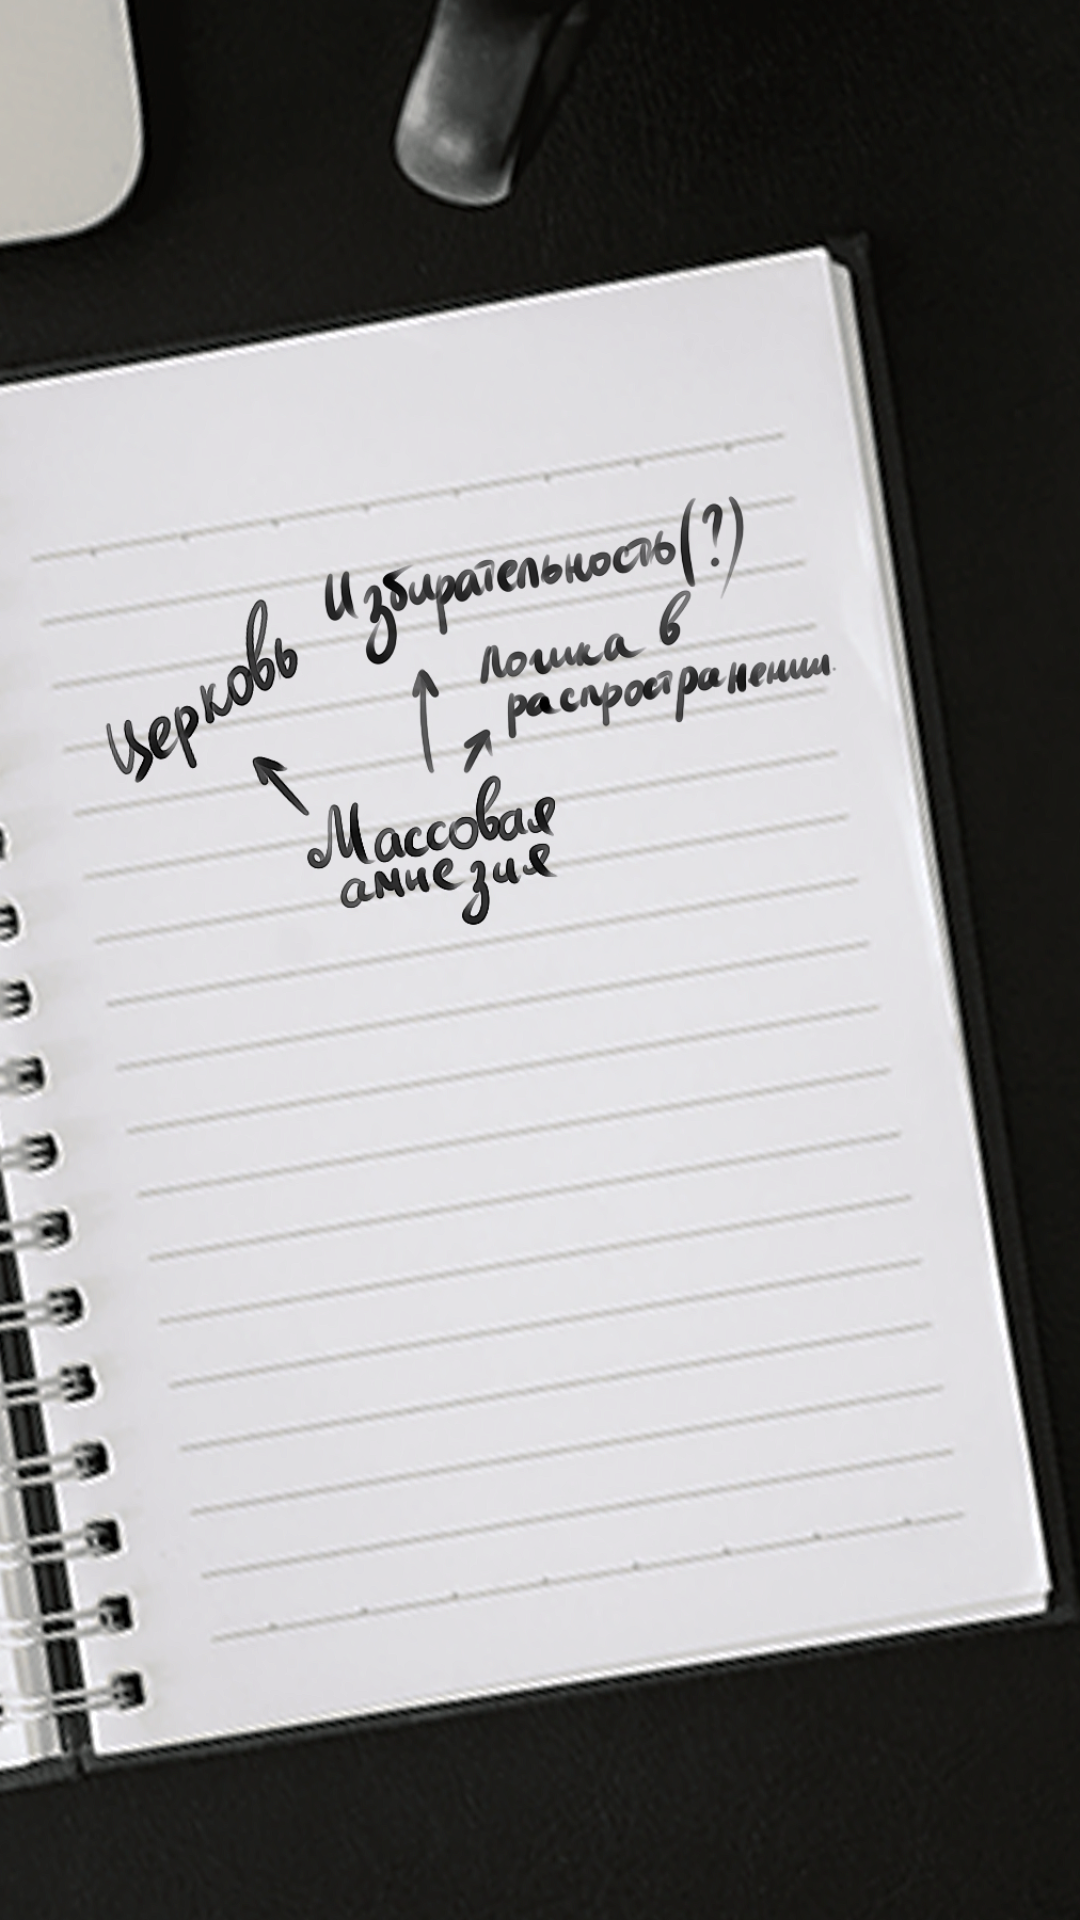 Церковь
Избирательность(?)
Логика в
распространении.
Массовая
амнезия